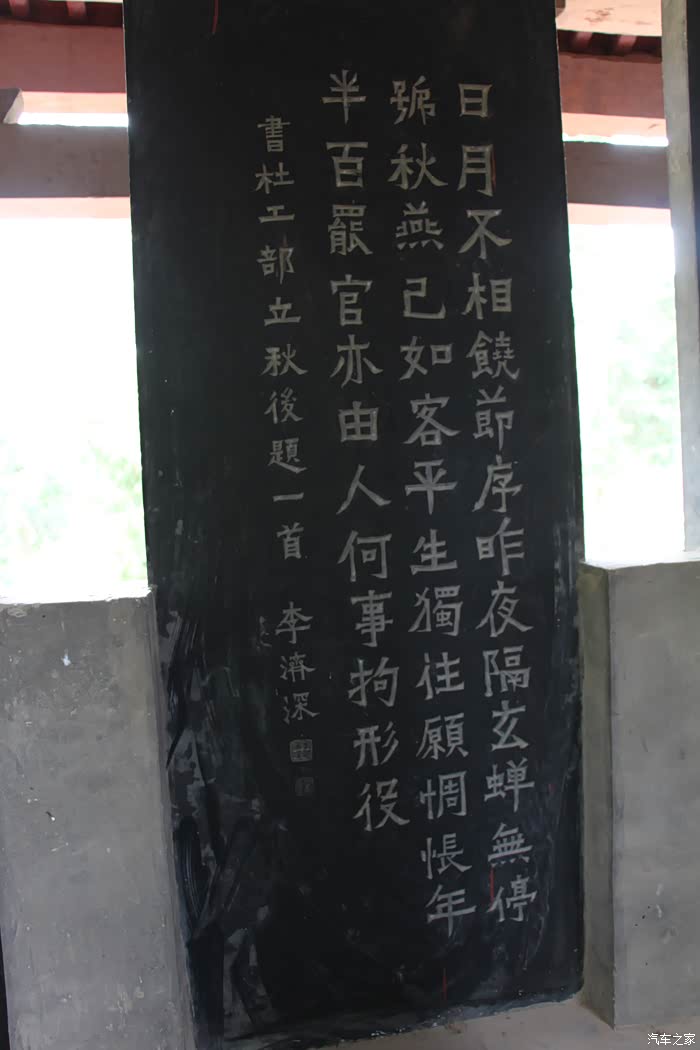 日月不相饒節序昨夜隔玄蝉無停
號秋燕己如客平生獨往願惆悵年
半百罷官亦由人何事拘形役
書杜工部立秋後題一首 李濟深
汽车之家